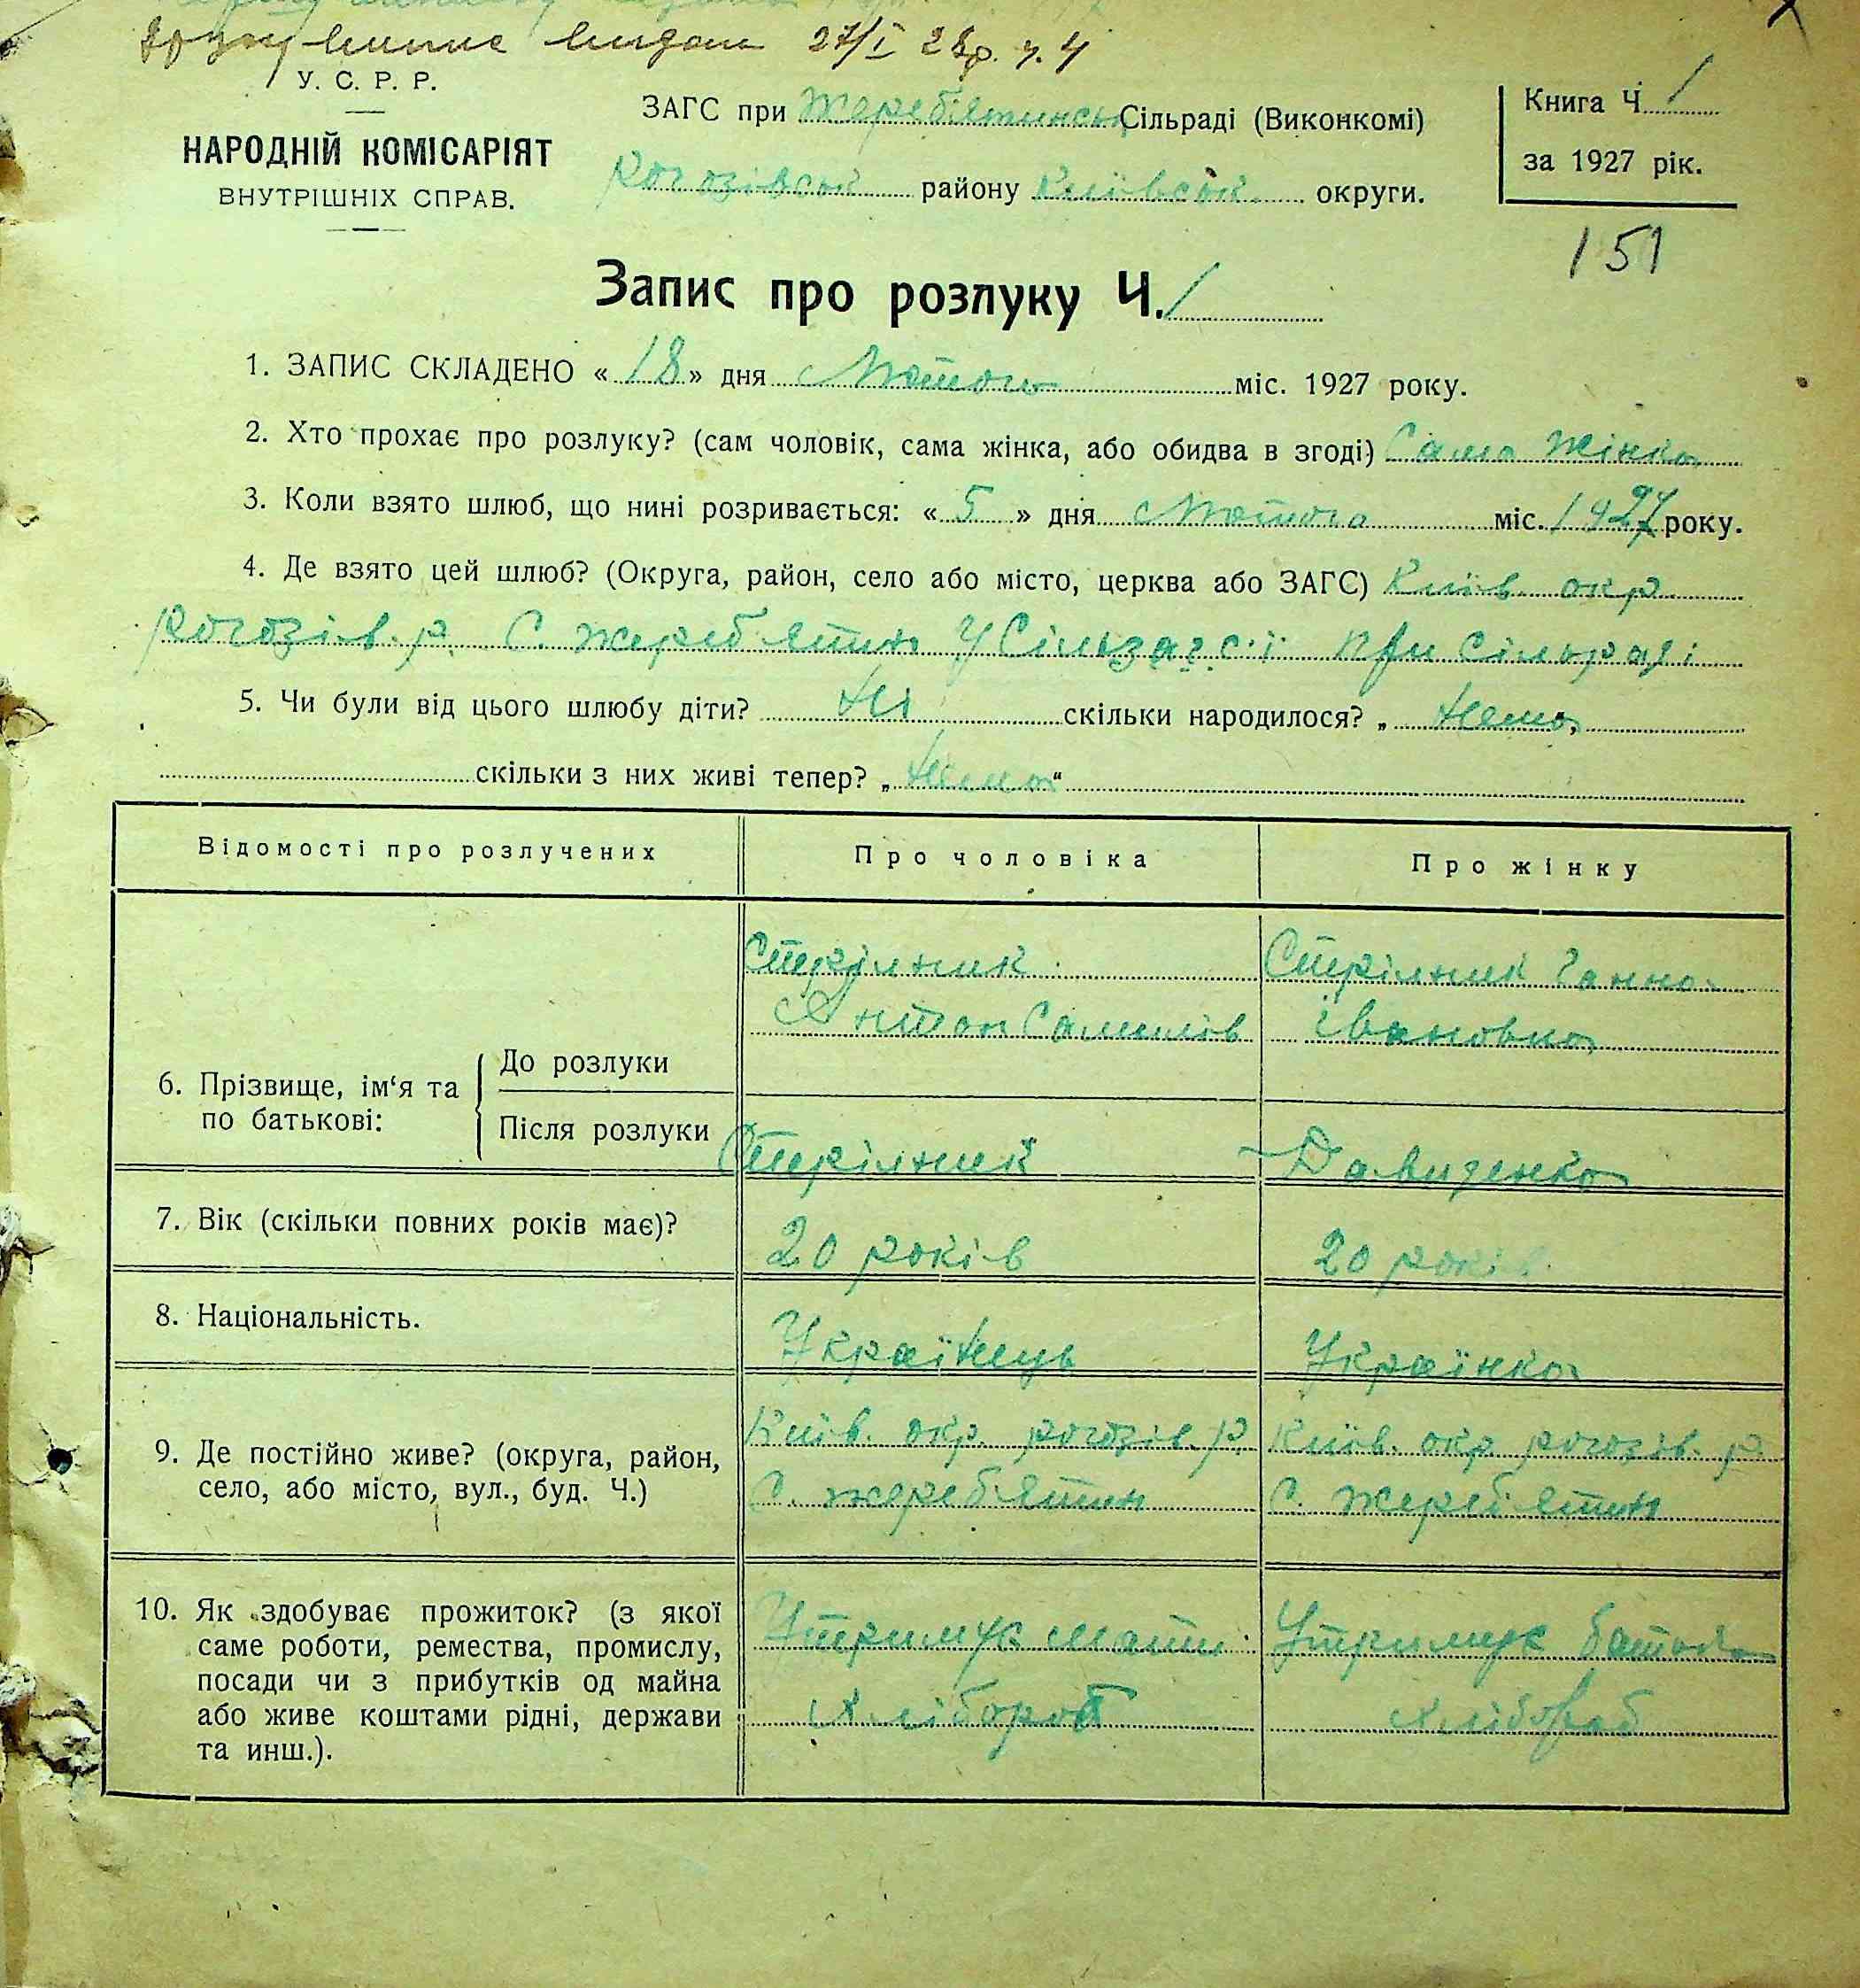 Другу виписку видано 27/I 28р. ч. 4
У. С. Р. Р.
НАРОДНІЙ КОМІСАРІЯТ
ВНУТРІШНІХ СПРАВ.
ЗАГС при Жеребʼятинськ Сільраді (Виконкомі)
Рогозівськ районy Київськ. округи.
Книга Ч. 1
за 1927 рік.
151
Запис про розлуку Ч. 1
1. ЗАПИС СКЛАДЕНО « 18 » дня Лютого міс. 1927 року.
2. Хто прохає про розлуку? (сам чоловік, сама жінка, або обидва в згоді) Сама жінка
3. Коли взято шлюб, що нині розривається: « 5 » дня Лютого міс. 1927 року.
4. Де взято цей шлюб? (Округа, район, село або місто, церква або ЗАГС) Київ. окр.
Рогозів. р. С. Жеребʼятин У Сільзагсі при Сільраді
5. Чи були від цього шлюбу діти? Ні скільки народилося? „ Нема,
скільки з них живі тепер? „Нема“
Відомості про розлучених
Про чоловіка
Про жінку
6. Прізвище, ім‘я та по батькові:
До розлуки
Стрілник
Антон Самилів
Стрілник Ганна
Івановна
Після розлуки
Стрілник
Давиденко
7. Вік (скільки повних років має)?
20 років
20 років
8. Національність.
Українець
Українка
9. Де постійно живе? (округа, район,
село, або місто, вул., буд. Ч.)
Київ. окр. рогозів. р.
С. жеребʼятин
Київ. окр рогозів. р.
С. жеребʼятин
10. Як здобуває прожиток? (з якої
саме роботи, ремества, промислу,
посади чи з прибутків од майна
або живе коштами рідні, держави
та инш.).
Утримує мати
Хлібороб
Утримує батько
хлібороб